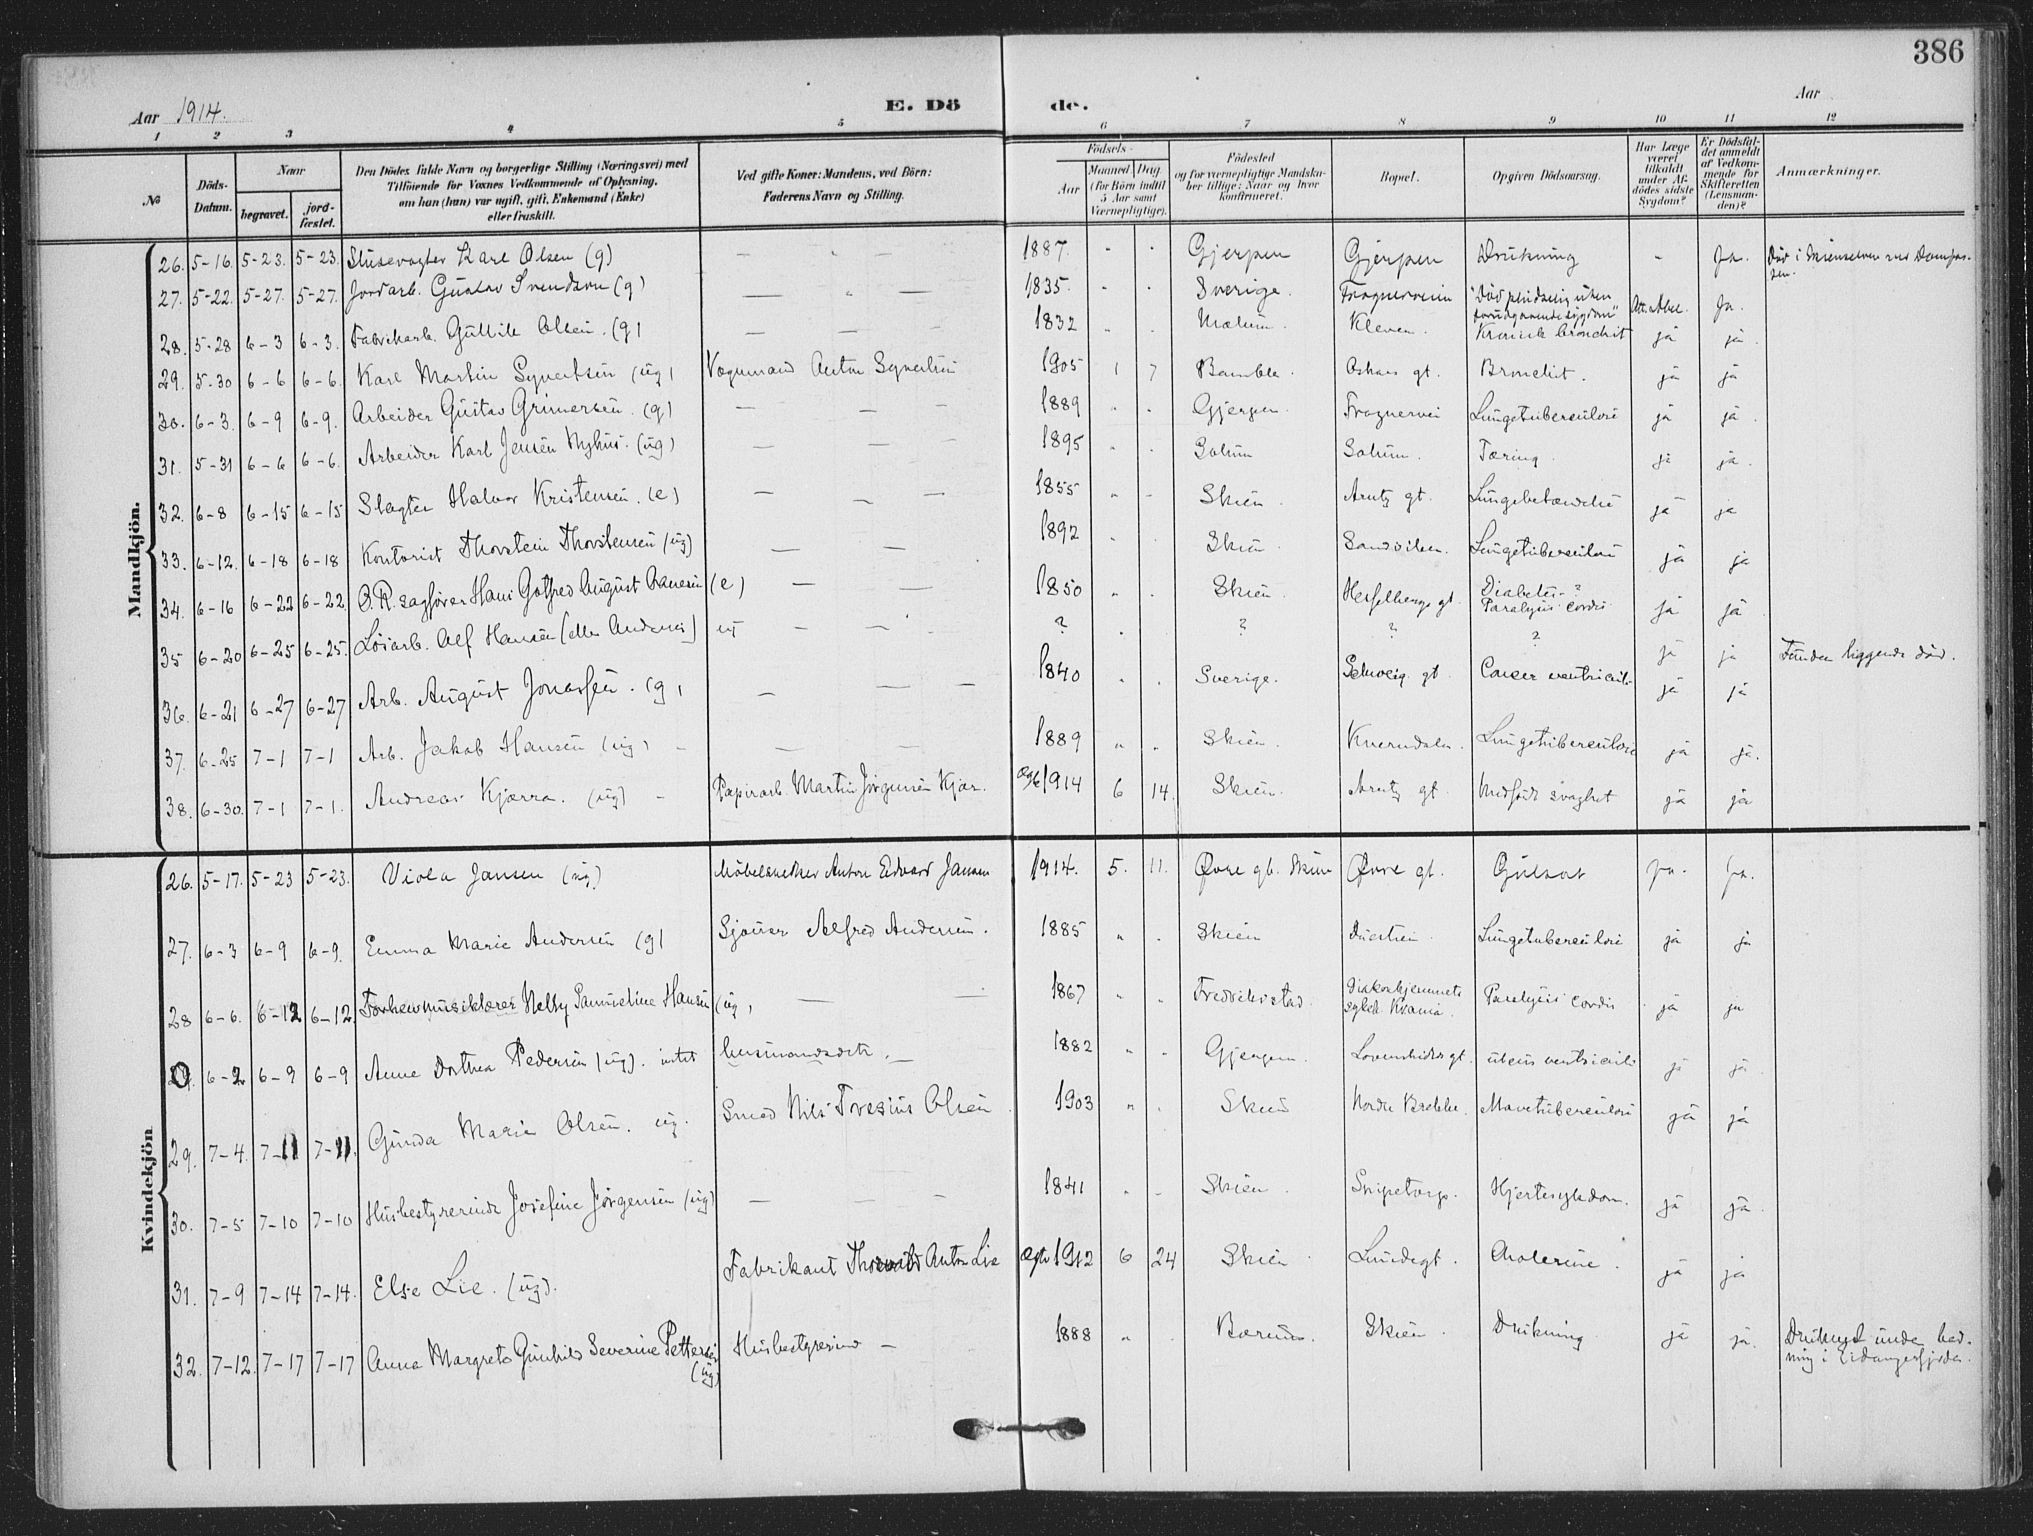 386
Aar 1914.
E. Dö
de.
Aar
1 2 3 4 5 6 7 8 9 10 11 12
№
Döds-Datum.
Naar
begravet.
jord-fæstet.
Den Dödes fulde Navn og borgerlige Stilling (Næringsvei) med
Tilföiende for Voxnes Vedkommende af Oplysning,
om han (hun) var ugift, gift, Enkemand (Enke)
eller fraskilt.
Ved gifte Koner: Mandens, ved Börn:
Faderens Navn og Stilling.
Födsels-
Aar
Maaned Dag
(for Börn indtil
5 Aar samt
Værnepligtige).
Födested
og for værnepligtige Mandska-
ber tillige: Naar og hvor
konfirmeret.
Bopæl.
Opgiven Dödsaarsag.
Har Læge
været
tilkaldt
under Af-
dödes sidste
Sygdom?
Er Dödsfal-
det anmeldt
af Vedkom-
mende for
Skifteretten
(Lensman-
den)?
Anmærkninger.
Mandkjön.
26. 5-16. 5-23. 5-23. Slusevogter Karl Olsen (g) — " — 1887. " " Gjerpen Gjerpen Drukning - Ja. Död i Skienselven
27. 5-22. 5-27. 5-27. Jordarb. Gustav Svendsen (g) — " — 1835. " " Sverige. Frognerveien "Död pludselig uten forudgaaende sygdom" Ja.
28. 5-28 6-3 6-3. Fabrikarb. Gullik Olsen. (g) — — — 1832 " " Mælum. Kleven. Kronisk bronchit ja ja.
29. 5-30 6-6 6-6. Karl Martin Syvertsen (ug) Vognmand Anton Syvertsen 1905 1 7 Bamble. gt. Bronchit. ja ja
30. 6-3. 6-9 6-9. Arbeider Gustav Grimersen. (g) — — — 1889 " " Gjerpen Frognervei Lungetuberculose ja ja.
31. 5-31 6-6 6-6. Arbeider Karl Jensen Nyhus. (ug) — — — 1895 " " Solum Solum. Tæring. ja ja.
32. 6-8 6-15 6-15 Slagter Halvor Kristensen. (e) — — — 1855 " - Skien. Arntz gt. Lungebetændelse ja ja
33. 6-12. 6-18 6-18 Kontorist Thorstein Thorstensen (ug) — — 1892 " " Skien Lungetuberculose ja ja
34. 6-16 6-22 6-22 O.R. sagfører Hans Gotfred August (e) — — 1850 " " Skien. Hesselbergs gt. Diabetes - ? Paralysis cordis ja ja.
35 6-20 6-25 6-25. Løsarb. Alf Hansen [eller Andersen] ug — — ? " ? ? ? ja ja Funden liggende död.
36. 6-21 6-27 6-27 Arb. August Jonassen. (g) — — — 1840 " " Sverige. gt. Cancer ventriculi. ja ja
37. 6-25 7-1 7-1 Arb. Jakob Hansen (ug) - — — 1889 " " Skien. Kverndalen. Lungetuberculose ja ja.
38. 6-30. 7-1 7-1. Andreas Kjærra. (ug) - Papirarb. Martin Jörgensen Kjær. 1914 6 14. Skien. Arntz gt. Medfödt svaghet ja ja
Kvindekjön
26. 5-17. 5-23 5-23. Viola Jansen (ug) Möbelsnedker Anton Edvard Jansen 1914. 5. 11. Øvre gt. Skien Øvre gt. Gulsot ja. ja.
27. 6-3 6-9 6-9. Emma Marie Andersen (g) Sjouer Alfred Andersen. 1885 " " Skien Lungetuberculose ja ja
28 6-6. 6-12 6-12. Forhenv. musiklærer Nelly Samueline Hansen (ug) — — 1867 " " Fredrikstad. Diakonhjemmets sykeh. Kr.ania. Paralysis cordis ja ja
6-2 6-9 6-9 Anne Dorthea Pedersen (ug). intet husmandsdtr. — 1882 " " Gjerpen. gt. ulcus ventriculi ja ja
29. 7-4. 7-11 7-11. Gunda Marie Olsen. ug. Smed Nils Olsen 1903 " " Skien Nordre Brekke. Mavetuberculose ja ja
30. 7-5 7-10 7-10 Husbestyrerinde Josefine Jörgensen (ug) — — — 1841 " " Skien. Snipetorp. Hjertesykdom. ja ja.
31. 7-9 7-14 7-14. Else Lie. (ug). Fabrikant Thorvald Anton Lie 1912 6 24 Skien Lundegt. Cholerine. ja ja
32. 7-12. 7-17 7-17 Anna Margrete Gunhild Severine Pettersen (ug) Husbestyrerinde — 1888 " " Bærum. Skien. Drukning ja ja. Druknet under bad-
ning i Eidangerfjorden.